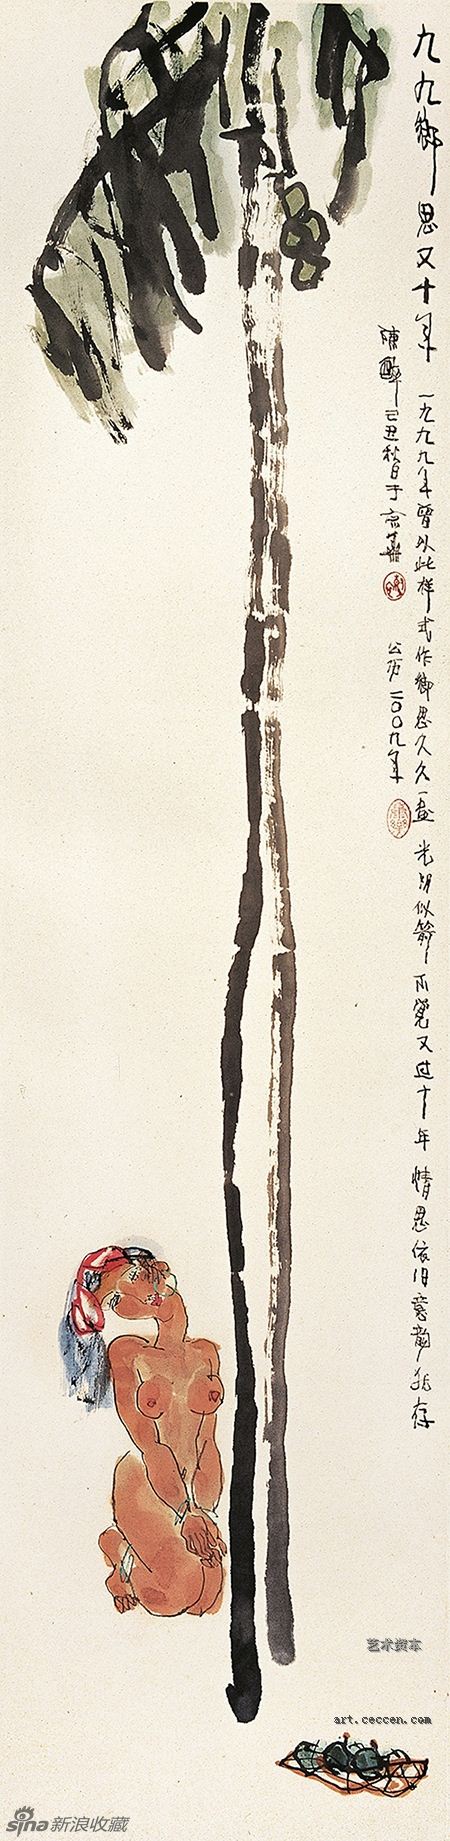 九九鄉思又十年 一九九九年曾以此样式作鄉思久久一畫 光阴似箭 不觉又过十年 情思依旧意韵犹存
陳醉己丑秋日于京華 公历二〇〇九年
艺术资本
art.ceccen.com
sina新浪收藏